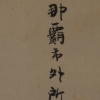 那覇市外所